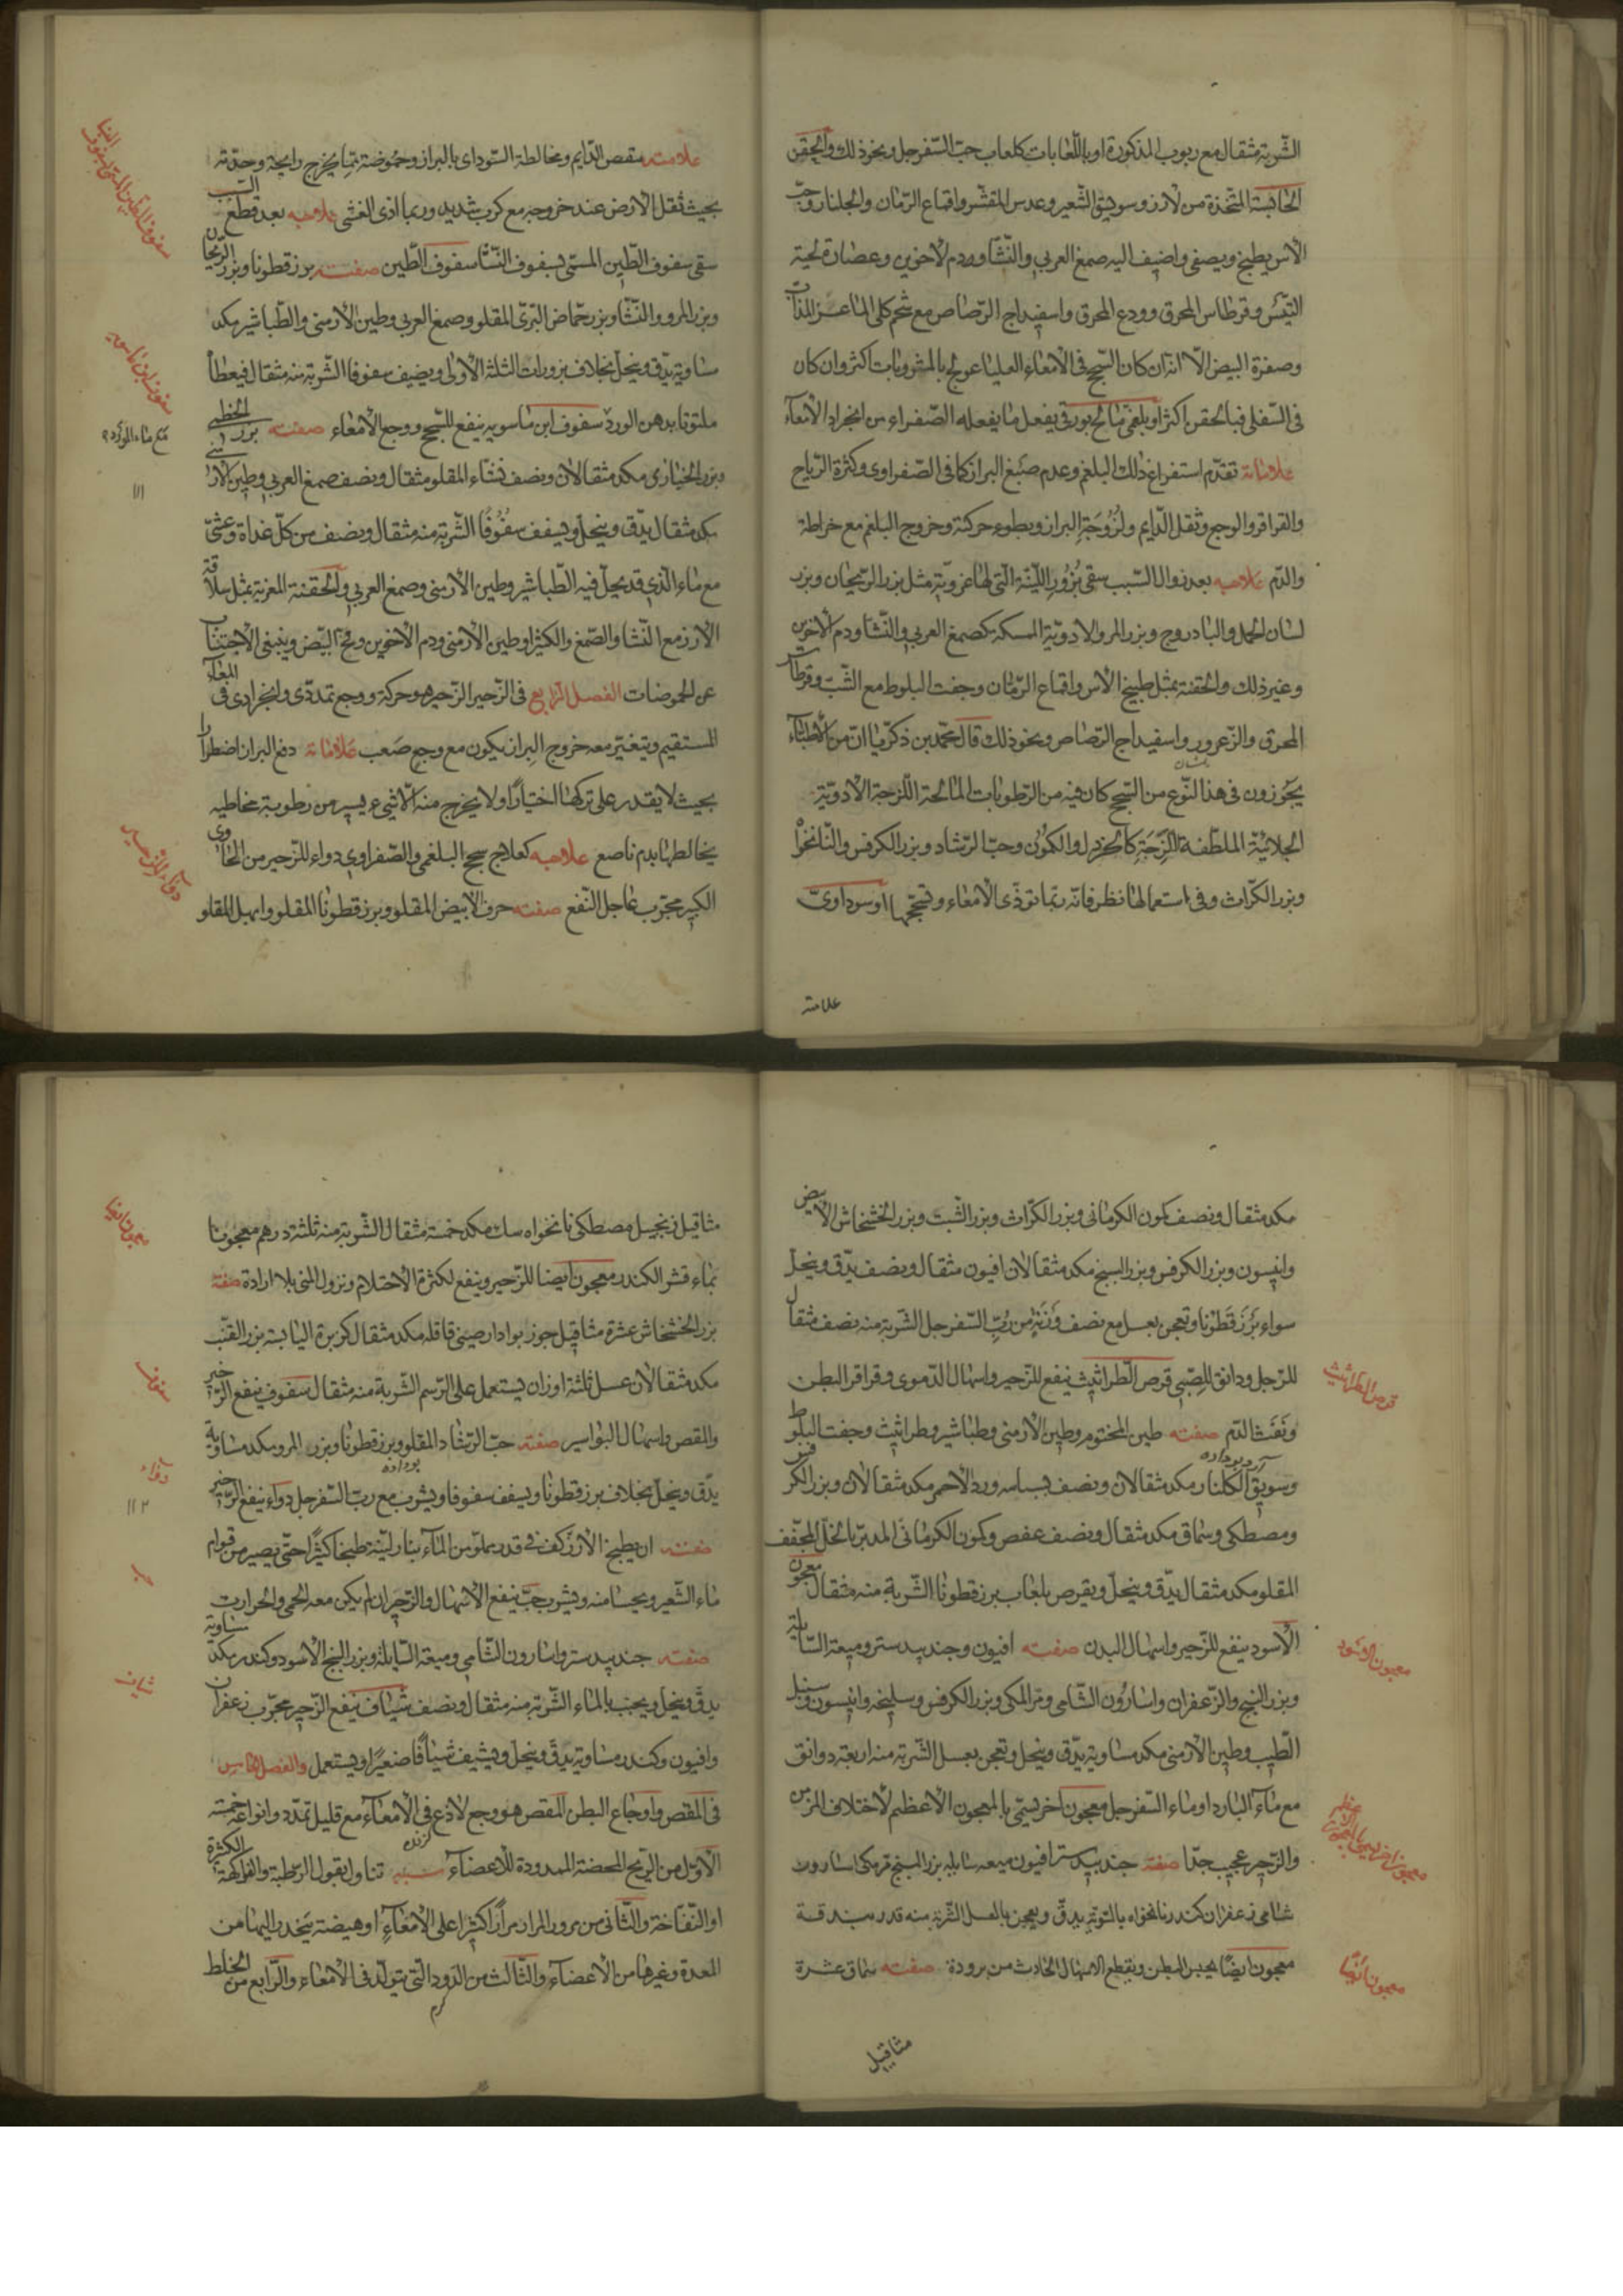 الشربة مثقال مع ربوب المذكورة او باللعابات كلعاب حب السفرجل ونحوذلك والحقن
الحابسة المتخذة من الارز وسويق الشعير وعدس المقشر واقماع الرمان والجلنار وحب
الاس يطبخ ويصفى واضيف اليه صمغ العربي والنشا ودم الاخوين وعصارة لحية
التيس وقرطاس المحرق وودع المحرق واسفيداج الرصاص مع شحم كلى الماعز المذاب
وصفرة البيض الا انه ان كان السحج فى الامعاء العليا عولج بالمشروبات اكثر وان كان
فى السفلى فبالحقن اكثر او بلغمى مالح بورقى يفعل ما يفعله الصفراء من انجراد الامعاء
علاماته تقدم استفراغ ذلك البلغم وعدم صبغ البراز كما فى الصفراوى وكثرة الرياح
والقراقر والوجع وثقل الدايم ولزوجة البراز وبطوء حركته وخروج البلغم مع خراطة
والدم علاجه بعد زوال السبب سقى بزور اللينة التى لها غروية مثل بزر الريحان وبزر
لسان الحمل والبادروج وبزر المرو الادوية المسكه كصمغ العربي والنشا ودم الاخوين
وغير ذلك والحقنة بمثل طبيخ الاس واقماع الرمان وجفت البلوط مع الشب وقرطاس
المحرق والزعرور واسفيداج الرصاص ونحوذلك قال محمد بن ذكريا ان من الاطباء
يجوزون فى هذا النوع من السحج كان فيه من الرطوبات المالحة اللزجة الادوية
الجلائية الملطفة للزجة كالخردل والكمون وحب الرشاد وبزر الكرفس والنانخواه
وبزر الكراث وفى استعمالها نظر فانه ربما توذى الامعاء وتسحجها او سوداوى
علامته
علامته مقص الدايم ومخالطة السوداى بالبراز وحموضة مما يخرج رايحته وحدته
بحيث ثقل الارض عند خروجه مع كرب شديد وربما ادى الغشى علاجه بعد قطع السبب
سقى سفوف الطين المسمى بسفوف النشا سفوف الطين صفته بزر قطونا وبزر الريحان
وبزر المرو والنشا وبزر حماض البرى المقلو وصمغ العربي وطين الارمنى والطباشير مكد
مساوية يدق وينخل بخلاف بزورات الثلثة الاولى ويضيف سفوفا الشربة منه مثقال فيعطا
ملتوتا بدهن الورد سفوف ابن ماسويه ينفع للسحج ووجع الامعاء صفته بزر الخطمى
وبزر الخبازى مكد مثقالان ونصف نشاء المقلو مثقال ونصف صمغ العربي وطين الارمنى
مكد مثقال يدق وينخل ويسفف سفوفا الشربة منه مثقال ونصف من كل غداة وعشى
مع ماء الذى قد يحل فيه الطباشير وطين الارمنى وصمغ العربي والحقنة المغرية بمثل سلاقة
الارز مع النشا والصمغ والكثيرا وطين الارمنى ودم الاخوين ومح البيض وينبغى الاجتناب
عن الحموضات الفصل الرابع فى الزحير الزحير هو حركة ووجع تمددى وانجرادى فى المعاء
المستقيم ويتغير معه خروج البراز يكون مع وجع صعب علاماته دفع البراز اضطرارا
بحيث لا يقدر على تركها اختيارا ولا يخرج منه الا شىء يسير من رطوبة مخاطيه
يخالطها بدم ناصع علاجه كعلاج سحج البلغمى والصفراوى دواء للزحير من الحاوى
الكبير مجرب عاجل النفع صفته حرف الابيض المقلو وبزر قطونا المقلو وابهل المقلو
سفوف ابن ماسويه
دواء الزحير
١١١
مكد مثقال ونصف كمون الكرمانى وبزر الكراث وبزر الشبت وبزر الخشخاش الابيض
وانيسون وبزر الكرفس وبزر البنج مكد مثقالان افيون مثقال ونصف يدق وينخل
سواء بزر قطونا وتعجن بعسل مع نصف وزنه من رب السفرجل الشربة منه نصف مثقال
للرجل ودانق للصبى قرص الطراثيث ينفع للزحير واسهال الدموى وقراقر البطن
ونفث الدم صفته طين المختوم وطين الارمنى وطباشير وطراثيث وجفت البلوط
وسويق الكلنار مكد مثقالان ونصف بسباسه ورد الاحمر مكد مثقالان وبزر الكرفس
ومصطكى وسماق مكد مثقال ونصف عفص وكمون الكرمانى المدبر بالخل المجفف
المقلو مكد مثقال يدق وينخل ويقرص بلعاب بزر قطونا الشربة منه مثقال معجون
الاسود ينفع للزحير واسهال البدن صفته افيون وجندبيدستر وميعة السايلة
وبزر البنج والزعفران واسارون الشامى ومر المكى وبزر الكرفس وسليخه وانيسون وسنبل
الطيب وطين الارمنى مكد مساوية يدق وينخل وتعجن بعسل الشربة منه اربعة دوانق
مع ماء البارد او ماء السفرجل معجون اخر يسمى بالمعجون الاعظم لاختلاف المزمن
والزحير عجيب جدا صفته جندبيدستر افيون ميعه سايله بزر البنج مر مكى اسارون
شامى زعفران كندر نانخواه بالسويه يدق ويعجن بالعسل الشربة منه قدر بندقة
معجون ايضا يحبس البطن ويقطع الاسهال الحادث من برودة صفته سماق عشرة
مثاقيل
قرص الطراثيث
معجون الاسود
معجون ايضا
مثاقيل زنجبيل مصطكى نانخواه سك مكد خمسة مثقال الشربة منه ثلثة درهم معجونا
بماء قشر الكندر معجون ايضا للزحير وينفع لكثرة الاحتلام ونزول المنى بلا ارادة صفته
بزر الخشخاش عشرة مثاقيل جوز بوا دارصينى قاقله مكد مثقال كزبرة اليابسة بزر القنب
مكد مثقالان عسل ثلثة اوزان يستعمل على الرسم الشربة منه مثقال سفوف ينفع الزحير
والمقص واسهال البواسير صفته حب الرشاد المقلو وبزر قطونا وبزر المرو مكد مساوية
يدق وينخل بخلاف بزر قطونا ويسفف سفوفا ويشرب مع رب السفرجل دواء ينفع الزحير
صفته ان يطبخ الارز كف فى قدر مملو من الماء بنار لينة طبخا كثيرا حتى يصير من قوام
ماء الشعير ويحسا منه ويشرب حب ينفع الاسهال والزحير ان لم يكن معه الحمى والحرارت
صفته جندبيدستر واسارون الشامى وميعة السايلة وبزر البنج الاسود وكندر مكد مساوية
يدق وينخل ويحبب بالماء الشربة منه مثقال ونصف شياف ينفع الزحير مجرب زعفران
وافيون وكندر مساوية يدق وينخل ويشيف شيافا صغيرا ويستعمل والفصل الخامس
فى المقص واوجاع البطن المقص هو وجع لاذع فى الامعاء مع قليل تمدد وانواعه خمسة
الاول من الريح المحضة الممدودة للاعضاء سببه تناول بقول الرطبة والفواكهة الكثرة
او النفاخة والثانى من مرور المرار مرارا كثيرا على الامعاء او هيضة ينحدر اليها من
المعدة وغيرها من الاعضاء والثالث من الدود التى تتولد فى الامعاء والرابع من الخلط
معجون ايضا
سفوف
دواء
١١٢
حب
شياف